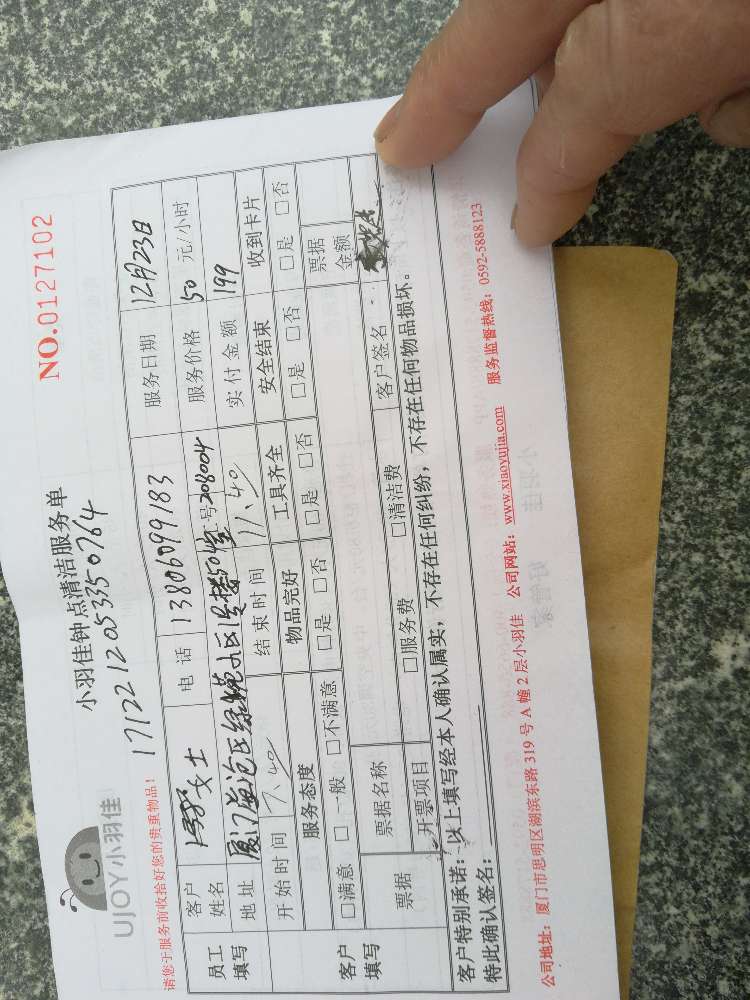 NO.0127102
小羽佳钟点清洁服务单
UJOY小羽佳
1712212053350764
请您于服务前收拾好您的贵重物品！
服务日期 12月23日
员工填写 客户姓名 女士 电话 13806099183 服务价格 50 元/小时
地址 厦门海沧区绿苑小区 工号208004 实付金额 199
开始时间 7.40 结束时间 11.40
客户填写 服务态度 物品完好 工具齐全 安全结束 收到卡片
□满意 □一般 □不满意 □是 □否 □是 □否 □是 □否 □是 □否
票据 票据名称 票据金额
开票项目 □服务费 □清洁费 客户签名
客户特别承诺：以上填写经本人确认属实，不存在任何纠纷，不存在任何物品损坏。
特此确认签名：
公司地址：厦门市思明区湖滨东路 319 号 A 幢 2 层小羽佳 公司网站：www.xiaoyujia.com 服务监督热线：0592-5888123